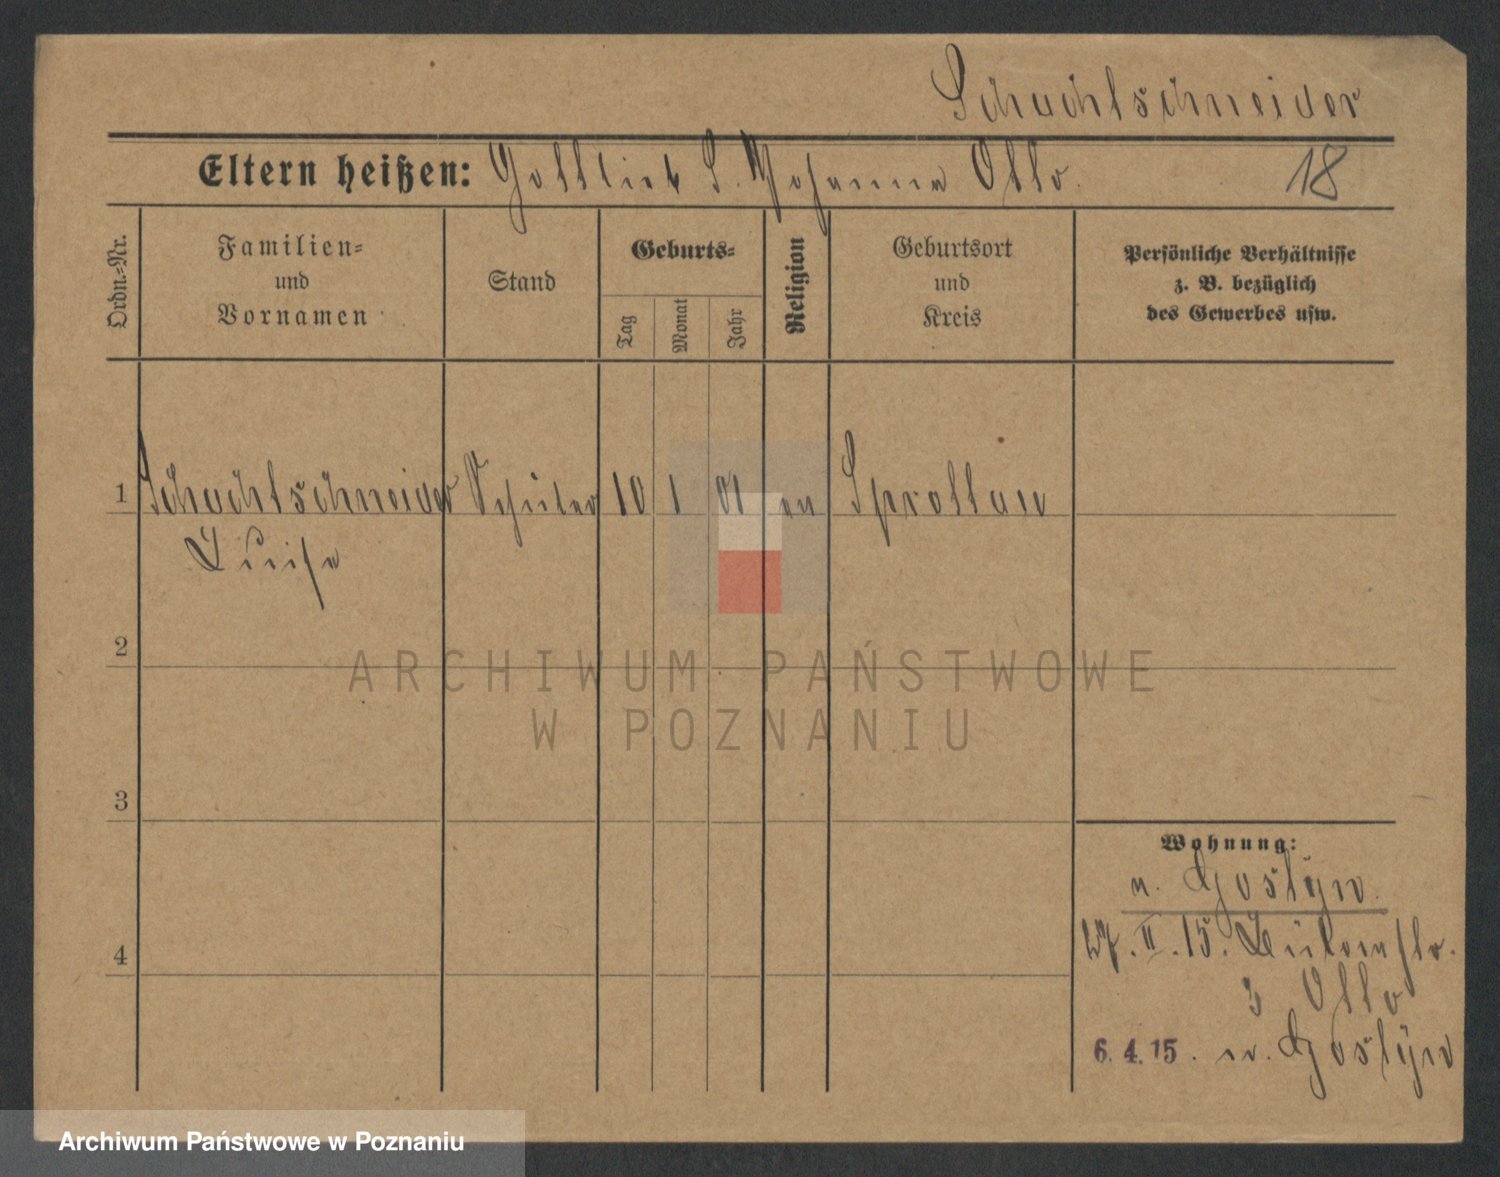 Schachtschneider
Eltern heißen: Gottlieb S. Johanna Otto. 18
Ordn.-Nr.
Familien- und Vornamen
Stand
Geburts-
Tag
Monat
Jahr
Religion
Geburtsort und Kreis
Persönliche Verhältnisse
z. B. bezüglich
des Gewerbes usw.
1 Schachtschneider Schüler 10 1 01 ev Sprottau
Luise
2
3
4
Wohnung:
v. Gostyn
27. II. 15.
3 Otto
6. 4. 15. n. Gostyn
ARCHIWUM PAŃSTWOWE
W POZNANIU
Archiwum Państwowe w Poznaniu